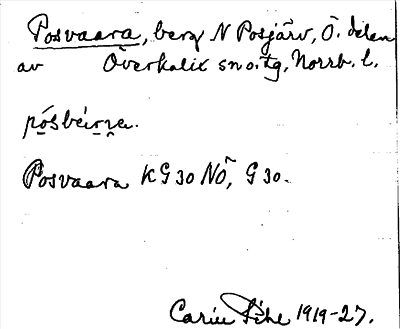 Posvaara, berg N Posjärv, Ö. delen
av Överkalix sn o. tg, Norrb. l.
Posvaara KG30 NÖ, G 30.
Carin Pihl 1919-27.